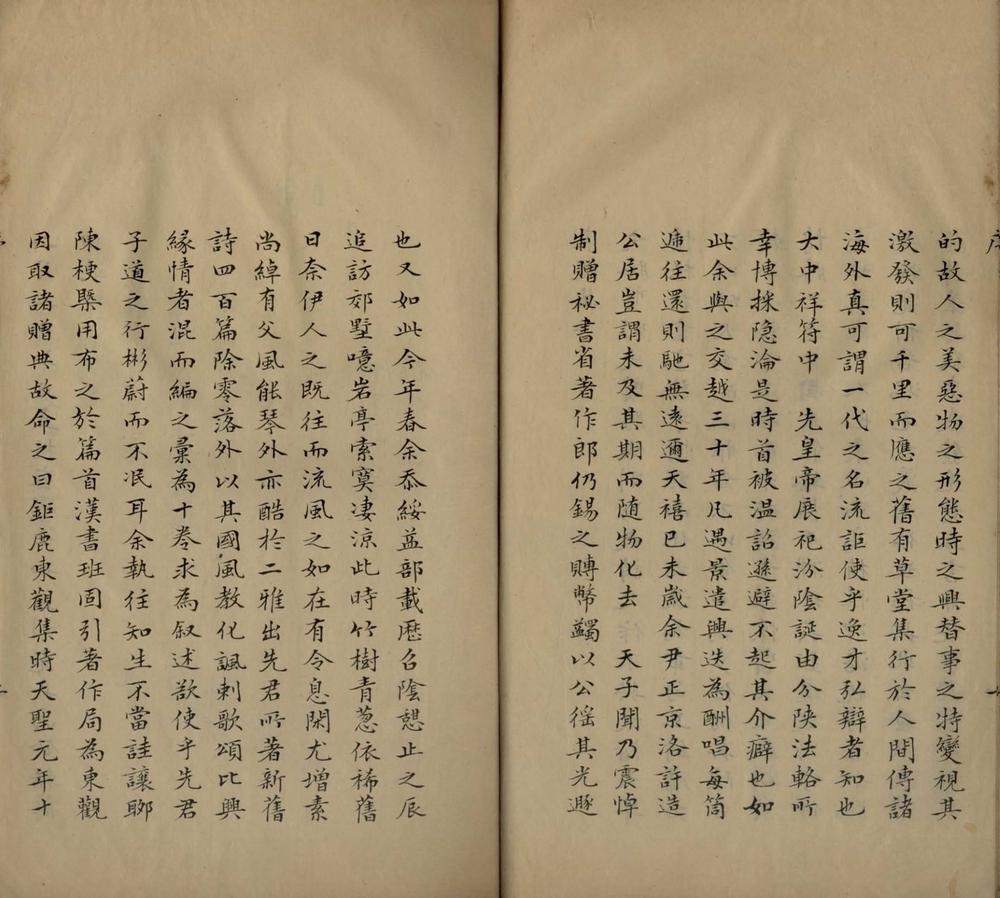 的故人之美惡物之形態時之興替事之特變視其
激發則可千里而應之舊有草堂集行於人間傳諸
海外真可謂一代之名流詎使乎逸才弘辯者知也
大中祥符中 先皇帝展祀汾陰誕由分陝法輅所
幸博採隐淪是時首被温詔遜避不起其介癖也如
此余與之交越三十年凡遇景遣興迭為酬唱每筒
遞往還則馳無遠邇天禧已未嵗余尹正京洛許造
公居豈謂未及其期而随物化去 天子聞乃震悼
制贈祕書省著作郎仍錫之賻幣蠲以公徭其光遯
也又如此今年春余忝綏益部載歷召陰憇止之辰
追訪郊墅噫岩亭索寞凄涼此時竹樹青蔥依稀舊
日奈伊人之既往而流風之如在有令息閑尤增素
尚綽有父風能琴外亦酷於二雅出先君所著新舊
詩四百篇除零落外以其國風教化諷刺歌頌比興
緣情者混而編之彙為十卷求為叙述欲使乎先君
子道之行彬蔚而不泯耳余執往知生不當詿讓聊
陳梗槩用布之於篇首漢書班固引著作局為東觀
因取諸贈典故命之曰鉅鹿東觀集時天聖元年十